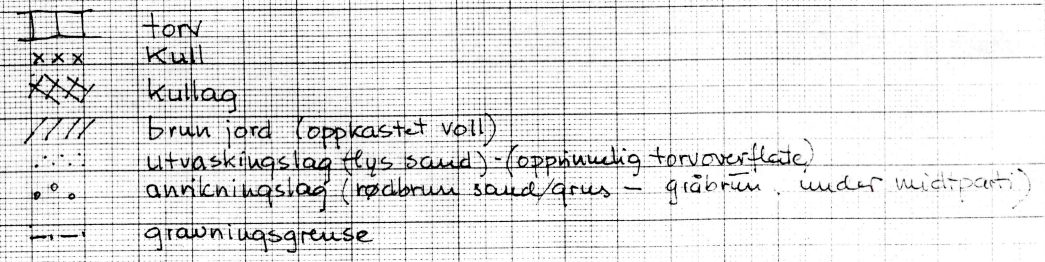 torv
xxx Kull
kullag
brun jord (oppkastet voll)
utvaskingslag (lys sand) - (opprinnelig torvoverflate)
anrikningslag (rødbrun sand/grus - gråbrun, under midtparti)
gravningsgrense